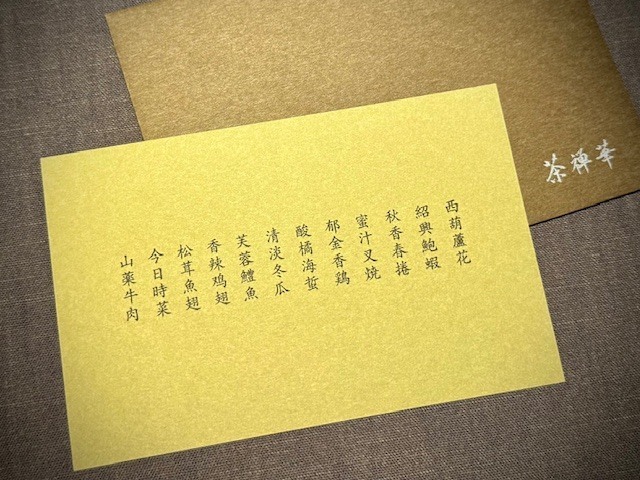 西葫蘆花
紹興鮑蝦
秋香春捲
蜜汁叉燒
郁金香鶏
酸橘海蜇
清淡冬瓜
芙蓉鱧魚
香辣鸡翅
松茸魚翅
今日時菜
山薬牛肉
茶禅華